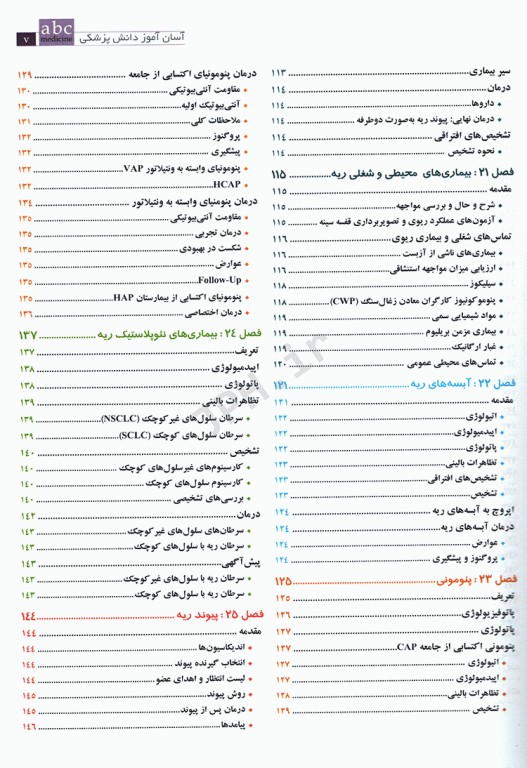 آسان آموز دانش پزشکی
abc
medicine
۷
سیر بیماری ۱۱۳
درمان ۱۱۴
• داروها ۱۱۴
• درمان نهایی: پیوند ریه به‌صورت دوطرفه ۱۱۴
تشخیص‌های افتراقی ۱۱۴
• نحوه تشخیص ۱۱۴
فصل ۲۱: بیماری‌های محیطی و شغلی ریه ۱۱۵
مقدمه ۱۱۵
• شرح و حال و بررسی مواجهه ۱۱۵
• آزمون‌های عملکرد ریوی و تصویربرداری قفسه سینه ۱۱۵
تماس‌های شغلی و بیماری ریوی ۱۱۶
• بیماری‌های ناشی از آزبست ۱۱۶
• ارزیابی میزان مواجهه استنشاقی ۱۱۶
• سیلیکوز ۱۱۸
• پنوموکونیوز کارگران معادن زغال‌سنگ (CWP) ۱۱۸
• مواد شیمیایی سمی ۱۱۹
• بیماری مزمن بریلیوم ۱۱۹
• غبار ارگانیک ۱۱۹
• تماس‌های محیطی عمومی ۱۲۰
فصل ۲۲: آبسه‌های ریه ۱۲۱
مقدمه ۱۲۱
• اتیولوژی ۱۲۲
• اپیدمیولوژی ۱۲۲
• پاتولوژی ۱۲۲
• تظاهرات بالینی ۱۲۳
• تشخیص‌های افتراقی ۱۲۳
• تشخیص ۱۲۳
اپروچ به آبسه‌های ریه ۱۲۴
درمان آبسه‌های ریه ۱۲۴
• عوارض ۱۲۴
• پروگنوز و پیشگیری ۱۲۴
فصل ۲۳: پنومونی ۱۲۵
تعریف ۱۲۵
پاتوفیزیولوژی ۱۲۶
پاتولوژی ۱۲۷
پنومونی اکتسابی از جامعه CAP ۱۲۷
• اتیولوژی ۱۲۷
• اپیدمیولوژی ۱۲۷
• تظاهرات بالینی ۱۲۸
• تشخیص ۱۲۹
درمان پنومونیای اکتسابی از جامعه ۱۲۹
• مقاومت آنتی‌بیوتیکی ۱۳۰
• آنتی‌بیوتیک اولیه ۱۳۰
• ملاحظات کلی ۱۳۱
• پروگنوز ۱۳۲
• پیشگیری ۱۳۲
• پنومونیای وابسته به ونتیلاتور VAP ۱۳۲
• HCAP ۱۳۲
درمان پنومنیای وابسته به ونتیلاتور ۱۳۴
• مقاومت آنتی‌بیوتیکی ۱۳۵
• درمان تجربی ۱۳۵
• شکست در بهبودی ۱۳۵
• عوارض ۱۳۵
• Follow-Up ۱۳۵
• پنومونیای اکتسابی از بیمارستان HAP ۱۳۵
• درمان اختصاصی ۱۳۶
فصل ۲۴: بیماری‌های نئوپلاستیک ریه ۱۳۷
تعریف ۱۳۷
اپیدمیولوژی ۱۳۸
پاتولوژی ۱۳۸
تظاهرات بالینی ۱۳۹
• سرطان سلول‌های غیرکوچک (NSCLC) ۱۳۹
• سرطان سلول‌های کوچک (SCLC) ۱۳۹
تشخیص ۱۴۰
• کارسینوم‌های غیرسلول‌های کوچک ۱۴۰
• کارسینوم سلول‌های کوچک ۱۴۰
• بررسی‌های تشخیصی ۱۴۰
درمان ۱۴۲
• سرطان‌های سلول‌های غیرکوچک ۱۴۳
• سرطان ریه با سلول‌های کوچک ۱۴۳
پیش‌آگهی ۱۴۳
• سرطان ریه با سلول‌های غیرکوچک ۱۴۳
• سرطان ریه با سلول‌های کوچک ۱۴۳
فصل ۲۵: پیوند ریه ۱۴۴
مقدمه ۱۴۴
• اندیکاسیون‌ها ۱۴۴
• انتخاب گیرنده پیوند ۱۴۴
• لیست انتظار و اهدای عضو ۱۴۴
• روش پیوند ۱۴۵
• درمان پس از پیوند ۱۴۵
• پیامدها ۱۴۶